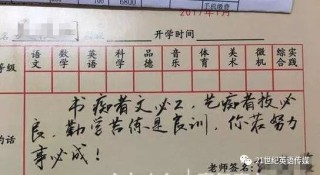 6800
手机缴费
2017年1月
开学时间
等级
语文
数学
英语
科学
品德
音乐
体育
美术
微机
综合实践
的话
书痴者文必工，艺痴者技必
良，勤学苦练是良训，你若努力
事必成！
老师签名：
21世纪英语传媒